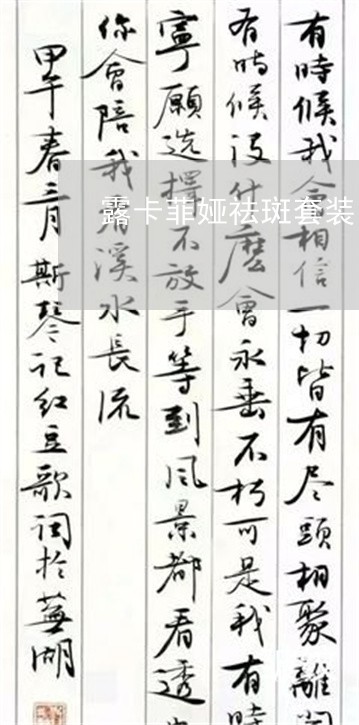 有時候我会相信一切皆有尽頭相聚離
有時候没什麽會永垂不朽可是我有時
寧願选擇不放手等到风景都看透
你會陪我看溪水長流
甲午春三月斯琴记红豆歌词於蕪湖
露卡菲娅祛斑套装